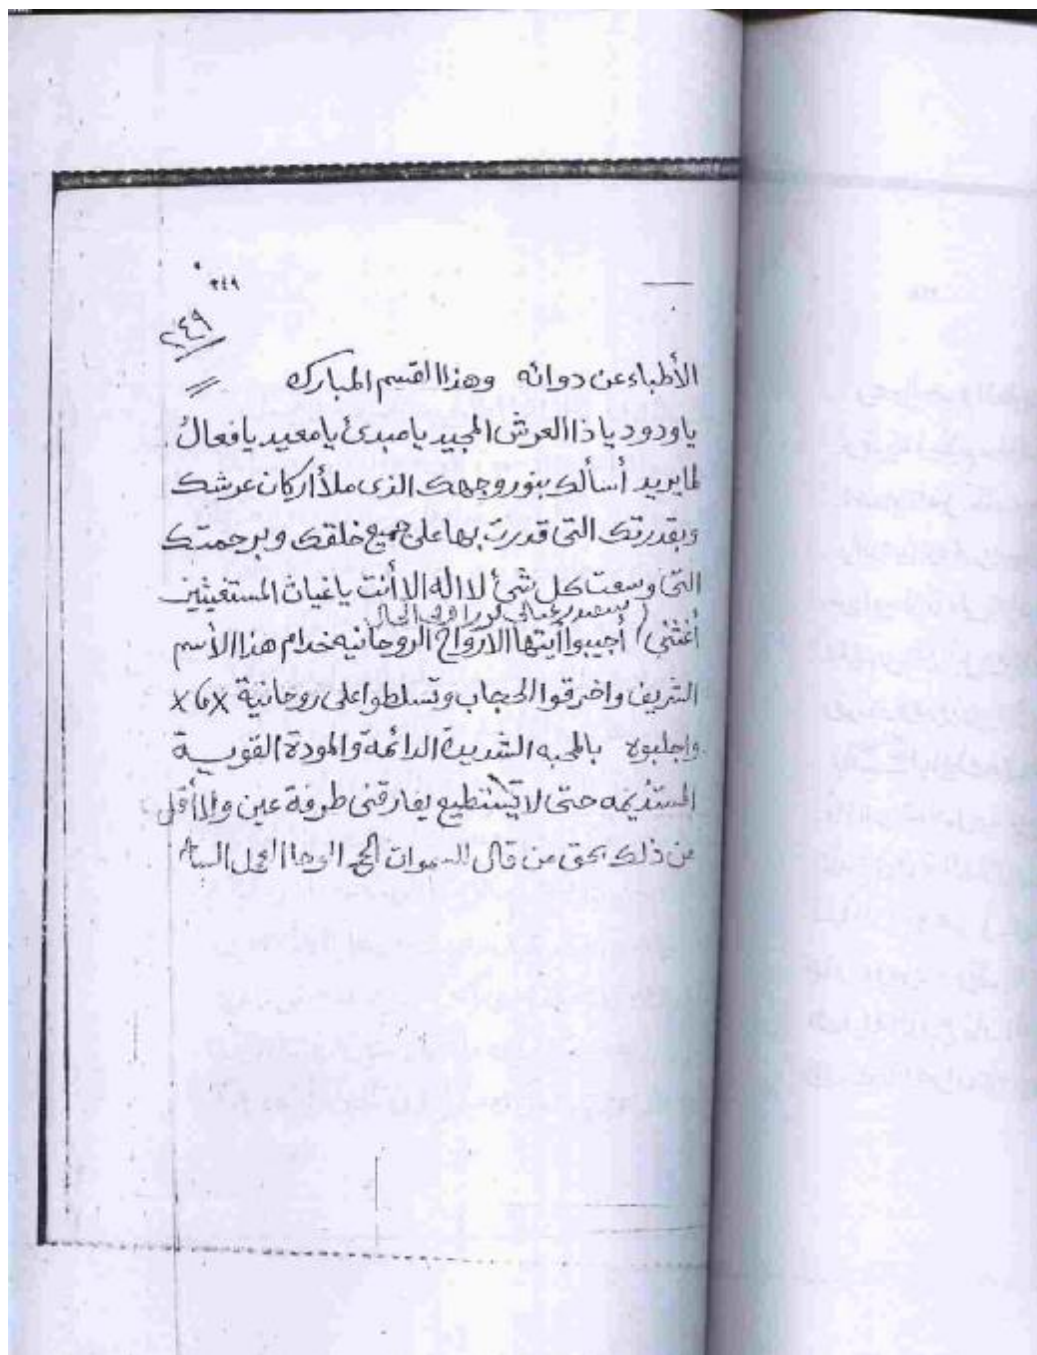 ٢٤٩
٢٤٩
الأطباء عن دوائه وهذا القسم المبارك
ياودود ياذا العرش المجيد يامبدئ يامعيد يافعالُ
لمايريد أسألك بنور وجهك الذى ملأ اركان عرشك
وبقدرتك التى قدرت بها على جميع خلقك وبرحمتك
التى وسعت كل شئ لا اله الا أنت ياغياث المستغيثين
أغثني أجيبوا أيتها الارواح الروحانيه خدام هذا الأسم
الشريف واخرقوا الحجاب وتسلطوا على روحانية
واجلبوه بالمحبه الشديدة الدائمة والمودة القوية
المستديمه حتى لا يستطيع يفارقنى طرفة عين ولا أقل
من ذلك بحق من قال للسموات الوحا العجل